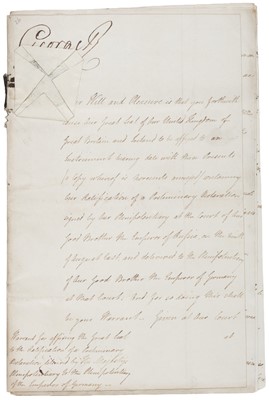 George R
Our Will and Pleasure is that you forthwith
cause our Great Seal of Our United Kingdom of
Great Britain and Ireland to be affixed to an
Instrument bearing date with these Presents
(a Copy whereof is hereunto annexed) containing
our Ratification of a Declaration
signed by our Plenipotentiary at the Court of Our
Good Brother the Emperor of Russia, on the
of August last and delivered to the Plenipotentiary
of Our Good Brother the Emperor of Germany
at that Court. And for so doing this shall
be your Warrant. Given at Our Court
at
Warrant for affixing the Great Seal
to the Ratification of
Declaration signed by His Majesty's
Plenipotentiary to the Plenipotentiary
of the Emperor of Germany